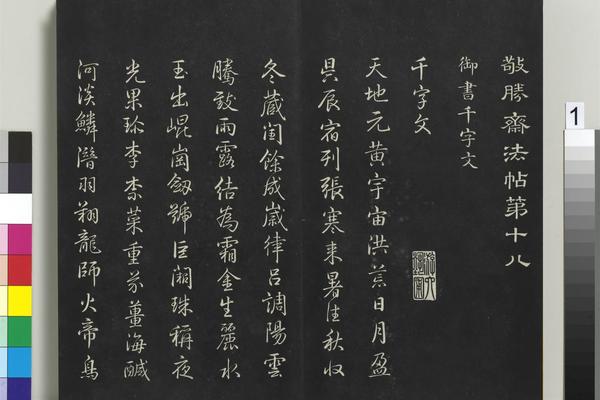 敬勝齋法帖第十八
御書千字文
千字文
天地元黄宇宙洪荒日月盈
昃辰宿列張寒来暑往秋収
冬蔵閏餘成歲律呂調陽雲
騰致雨露結為霜金生麗水
玉出崐崗劔號巨闕珠稱夜
光果珎李柰菜重芥薑海鹹
河淡鱗潛羽翔龍師火帝鳥
1